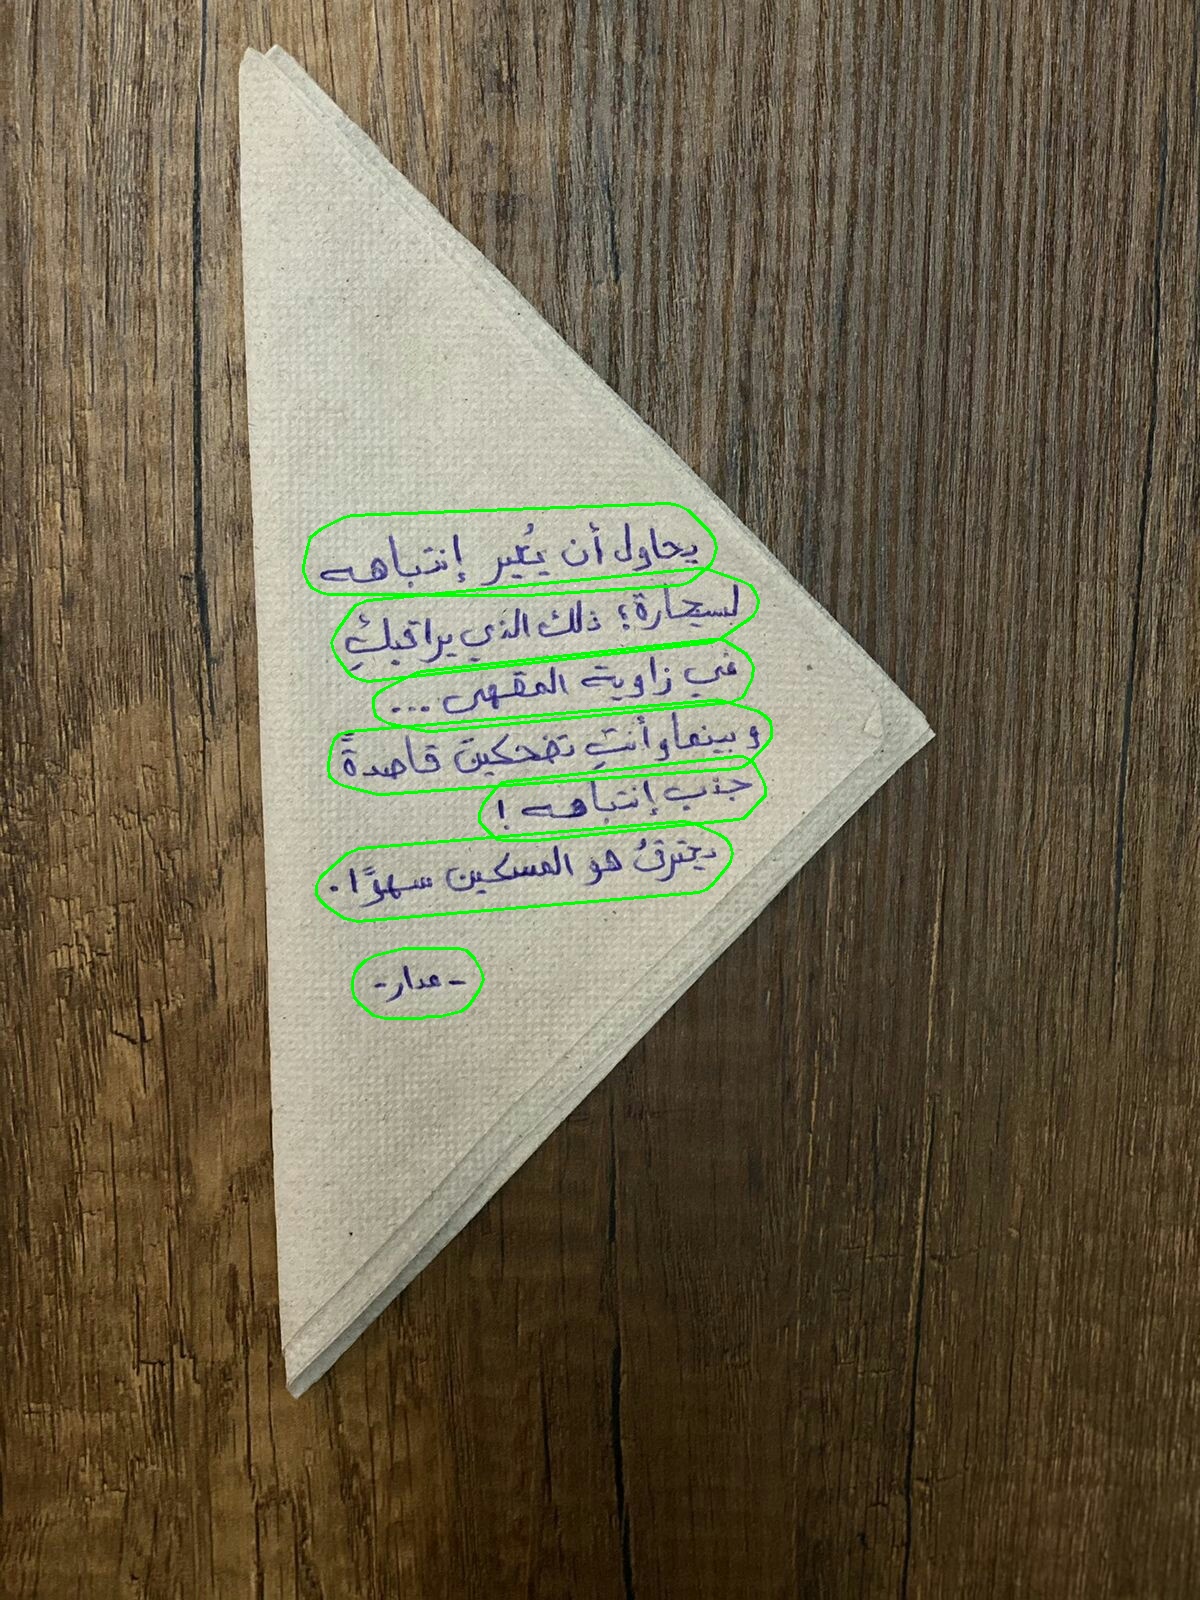 يحاول أن يُعير إنتباهه
لسيجارة؛ ذلك الذي يراقبكِ
في زاوية المقهى ...
وبينما وأنتِ تضحكين قاصدةً
جذب إنتباهه !
يحترقُ هو المسكين سهوًا.
- مدار -